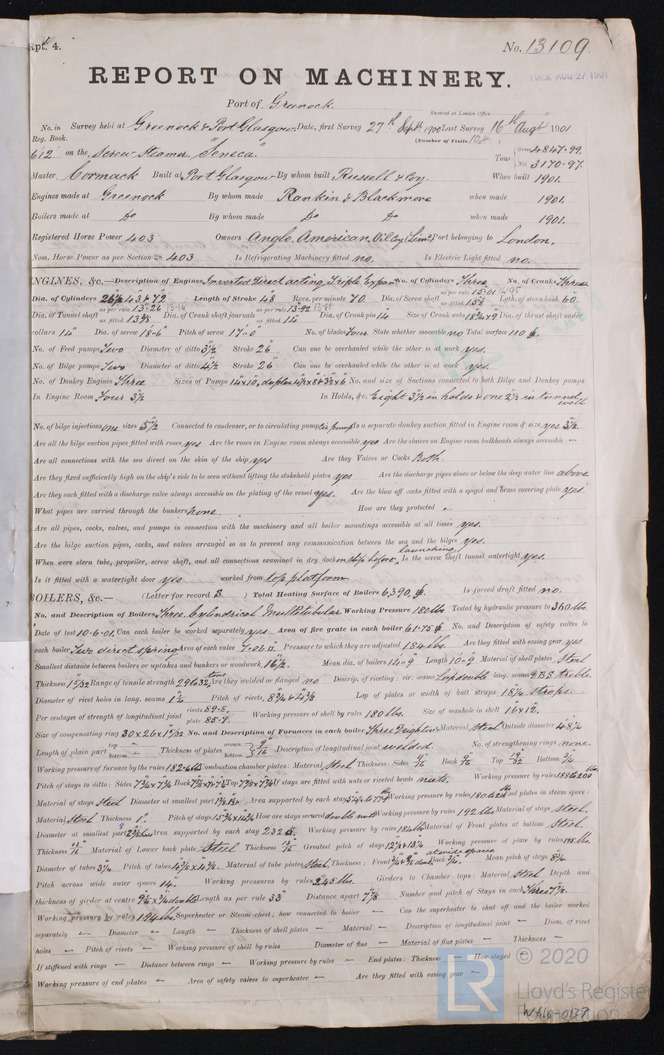 Rpt. 4.
No. 13109.
TUES. AUG 27 1901
REPORT ON MACHINERY.
Port of Greenock.
Received at London Office
No. in Survey held at Greenock & Port Glasgow Date, first Survey 27th Septr. 1900 Last Survey 16th Augt 1901
Reg. Book. (Number of Visits 104)
612 on the Screw Steamer "Seneca" Tons Gross 4847.99. Net 3170.97.
Master Cormack Built at Port Glasgow By whom built Russell & Coy. When built 1901.
Engines made at Greenock By whom made Rankin & Blackmore when made 1901.
Boilers made at do By whom made do do when made 1901.
Registered Horse Power 403 Owners Anglo American Oil Coy Limd Port belonging to London.
Nom. Horse Power as per Section 28 403 Is Refrigerating Machinery fitted no. Is Electric Light fitted no.
ENGINES, &c.—Description of Engines Inverted Direct acting, Triple Expan. No. of Cylinders Three No. of Cranks Three
Dia. of Cylinders 26½ 43 & 72 Length of Stroke 48 Revs. per minute 70 Dia. of Screw shaft as per rule 15.01 as fitted Lgth. of stern bush 60.
Dia. of Tunnel shaft as per rule 13.26 as fitted Dia. of Crank shaft journals as per rule 13.92 as fitted 14 Dia. of Crank pin 14 Size of Crank webs Dia. of thrust shaft under
collars 14" Dia. of screw 18-6" Pitch of screw 17-0" No. of blades Four State whether moveable no Total surface 110
No. of Feed pumps Two Diameter of ditto 3½ Stroke 26 Can one be overhauled while the other is at work yes.
No. of Bilge pumps Two Diameter of ditto 4½ Stroke 26 Can one be overhauled while the other is at work yes.
No. of Donkey Engines Three Sizes of Pumps No. and size of Suctions connected to both Bilge and Donkey pumps
In Engine Room Four 3½ In Holds, &c. Eight 3½ in holds & one 2½ in tunnel well
No. of bilge injections one sizes 5½ Connected to condenser, or to circulating pump cir. pump Is a separate donkey suction fitted in Engine room & size yes 3½.
Are all the bilge suction pipes fitted with roses yes Are the roses in Engine room always accessible yes Are the sluices on Engine room bulkheads always accessible —
Are all connections with the sea direct on the skin of the ship yes Are they Valves or Cocks Both.
Are they fixed sufficiently high on the ship's side to be seen without lifting the stokehold plates yes Are the discharge pipes above or below the deep water line above
Are they each fitted with a discharge valve always accessible on the plating of the vessel yes. Are the blow off cocks fitted with a spigot and brass covering plate yes
What pipes are carried through the bunkers none How are they protected -
Are all pipes, cocks, valves, and pumps in connection with the machinery and all boiler mountings accessible at all times yes.
Are the bilge suction pipes, cocks, and valves arranged so as to prevent any communication between the sea and the bilges yes.
When were stern tube, propeller, screw shaft, and all connections examined in dry dock on slip before launching Is the screw shaft tunnel watertight yes.
Is it fitted with a watertight door yes worked from top platform
BOILERS, &c.— (Letter for record S.) Total Heating Surface of Boilers 6,390. Is forced draft fitted no.
No. and Description of Boilers Three Cylindrical Multitubular Working Pressure 180 lbs Tested by hydraulic pressure to 360 lbs.
Date of test 10-6-01 Can each boiler be worked separately yes Area of fire grate in each boiler 61.75 No. and Description of safety valves to
each boiler Two direct spring Area of each valve 7.06 Pressure to which they are adjusted 184 lbs Are they fitted with easing gear yes
Smallest distance between boilers or uptakes and bunkers or woodwork 16½. Mean dia. of boilers 14-9 Length 10-9 Material of shell plates Steel
Thickness Range of tensile strength 29 to 32 tons Are they welded or flanged no Descrip. of riveting: cir. seams Lap double long. seams DBS treble.
Diameter of rivet holes in long. seams 1¼ Pitch of rivets Lap of plates or width of butt straps 18¼ straps
Per centages of strength of longitudinal joint rivets 89.8, plate 85.7. Working pressure of shell by rules 180 lbs. Size of manhole in shell 16 x 12.
Size of compensating ring 30 x 26 x No. and Description of Furnaces in each boiler Three Deighton Material steel Outside diameter
Length of plain part top bottom Thickness of plates crown bottom Description of longitudinal joint welded. No. of strengthening rings none.
Working pressure of furnace by the rules 182.6 lbs Combustion chamber plates: Material Steel Thickness: Sides Back Top Bottom
Pitch of stays to ditto: Sides Back Top If stays are fitted with nuts or riveted heads nuts. Working pressure by rules
Material of stays Steel Diameter at smallest part Area supported by each stay Working pressure by rules End plates in steam space:
Material Steel Thickness 1" Pitch of stays How are stays secured double nuts Working pressure by rules 192 lbs Material of stays Steel.
Diameter at smallest part Area supported by each stay 232 Working pressure by rules 181 lbs Material of Front plates at bottom Steel.
Thickness Material of Lower back plate Steel Thickness Greatest pitch of stays Working pressure of plate by rules
Diameter of tubes 3¼ Pitch of tubes Material of tube plates Steel, Thickness: Front Back Mean pitch of stays
Pitch across wide water spaces 14". Working pressures by rules 245 lbs. Girders to Chamber tops: Material Steel Depth and
thickness of girder at centre Length as per rule 33" Distance apart Number and pitch of Stays in each Three 7½.
Working pressure by rules 194 lbs Superheater or Steam chest; how connected to boiler — Can the superheater be shut off and the boiler worked
separately — Diameter — Length — Thickness of shell plates — Material — Description of longitudinal joint — Diam. of rivet
holes — Pitch of rivets — Working pressure of shell by rules Diameter of flue — Material of flue plates — Thickness —
If stiffened with rings — Distance between rings — Working pressure by rules — End plates: Thickness How stayed
Working pressure of end plates — Area of safety valves to superheater — Are they fitted with easing gear —
LR
© 2020
Lloyd's Register
Foundation